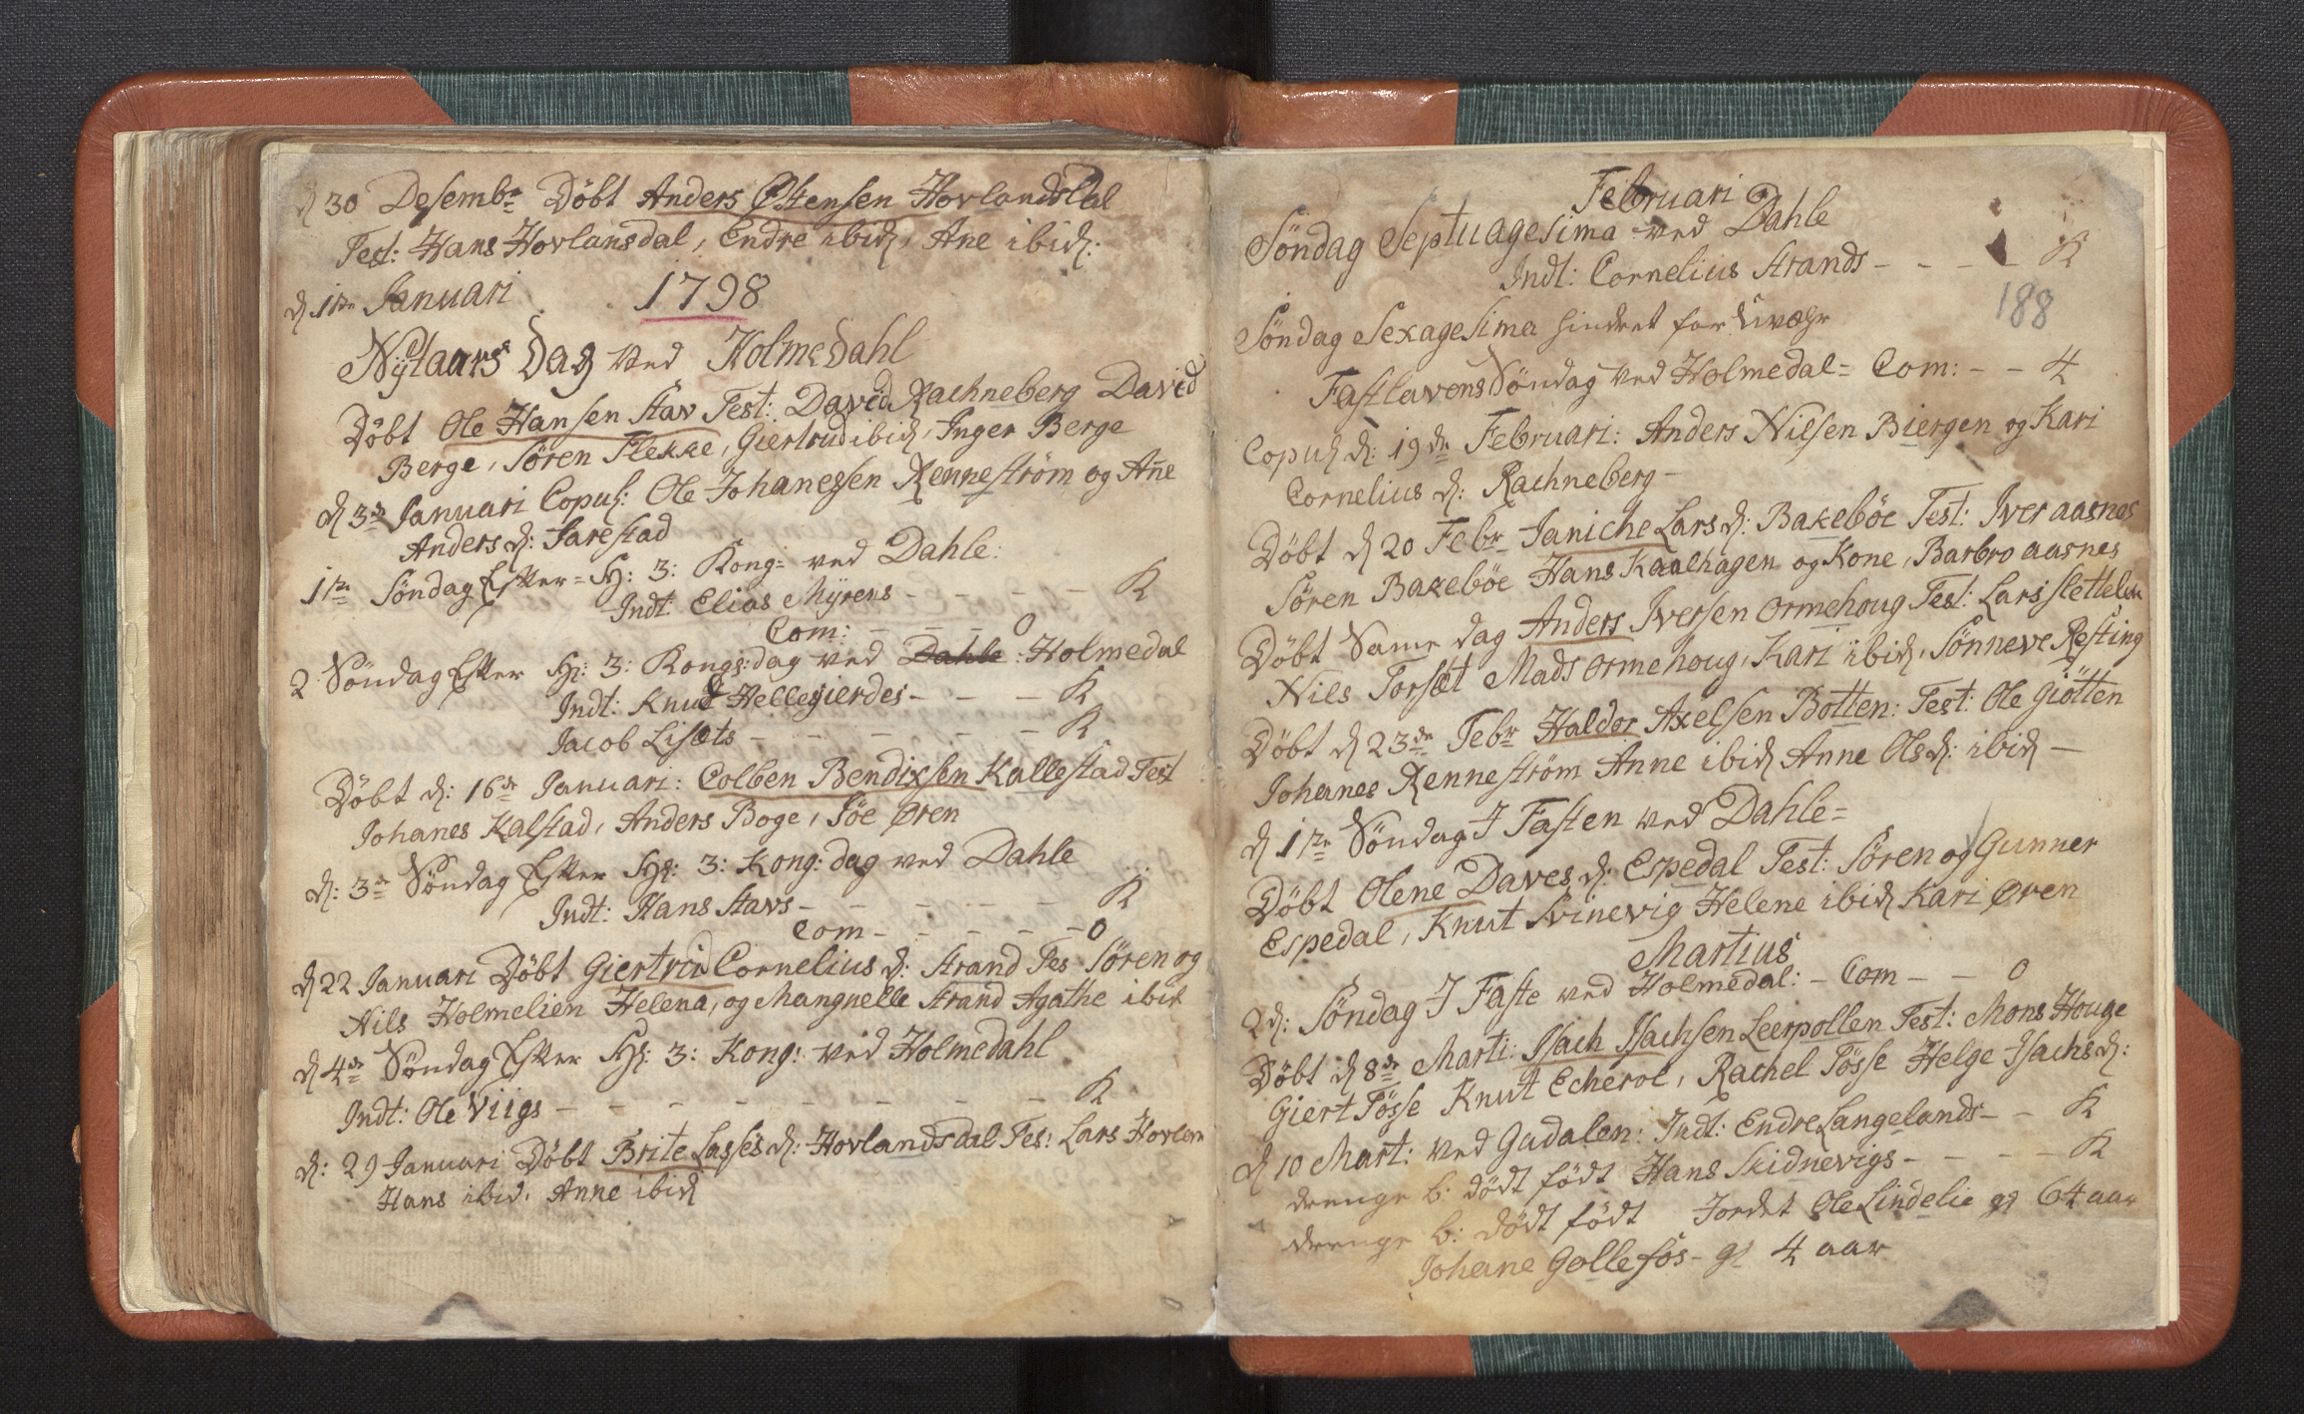 d 30 Desembr Döbt Anders Østensen Hovlandsdal
Test: Hans Hovlansdal, Endre ibid, Ane ibid:
d 1te Januari 1798
Nÿtaars Dag ved Holmedahl
Döbt Ole Hansen Stav Test: David Rachneberg David
Berge, Sören Flekke, Giertrud ibid, Inger Berge
d 3de Januari Copul: Ole Johanessen Renneström og Añe
Anders d: Sarestad
1te Söndag Efter = H: 3: Kong: ved Dahle:
Indt: Elias Mÿrens - - - - K
Com: - - - 0
2 Söndag Efter H: 3: Kongs: dag ved Dahle: Holmedal
Indt: Knud Hellegierdes - - - K
Jacob Lisæts - - - - - K
Döbt d: 16de Januari: Colben Bendixsen Kallestad Test
Johanes Kalstad, Anders Boge, Söe Øren
d: 3de Söndag Efter H: 3: Kong: dag ved Dahle
Indt: Hans Stavs - - - - - K
Com - - - - - 0
d 22 Januari Döbt Giertrud Cornelius d: Strand Tes Sören og
Nils Holmelien Helena, og Mangnelle Strand Agathe ibid
d 4de Söndag Efter H: 3: Kong: ved Holmedahl
Indt: Ole Viigs - - - - - - - - K
d: 29 Januari Döbt Brite Lasses d: Hovlandsdal Tes: Lars Hovlan
Hans ibid, Anne ibid
Februari
Söndag Septuagesima ved Dahle
Indt: Cornelius Strands - - - - K
188
Söndag Sexagesima hindret for Uvæhr
Fastlavens Söndag ved Holmedal = Com: - - 4
Copul d: 19de Februari: Anders Nilsen Biergen og Kari
Cornelius d: Rachneberg -
Döbt d 20 Febr Janiche Lars d: Bakeböe Test: Iver aasnes
Sören Bakeböe Hans Kaalhagen og Kone, Barbro aasnes
Döbt Same dag Anders Iversen Ormehoug Test: Lars Stettelen
Nils Torsæt Mads Ormehoug, Kari ibid, Sönneve Resting
Döbt d 23de Febr Haldor Axelsen Botten: Test: Ole Giötten
Johanes Renneström Anne ibid Anne Ols d: ibid -
d 1te Söndag I Fasten ved Dahle =
Döbt Olene Daves d: Espedal Test: Sören og Gunner
Espedal, Knut Svinevig Helene ibid Kari Øren
Martius
2d: Söndag I Faste ved Holmedal: - Com - - 0
Döbt d 8de Marti: Isach Isachsen Leerpollen Test: Mons Houge
Giert Tösse Knut Echeroe, Rachel Tösse Helge Isachs d:
d 10 Mart: ved Gudalen: Indt: Endre Langelands - - K
drenge b: dödt födt Hans Skidnevigs - - - - K
drenge b: dödt födt Jordet Ole Lindelie gl 64 aar
Johane Gollefos - gl 4 aar